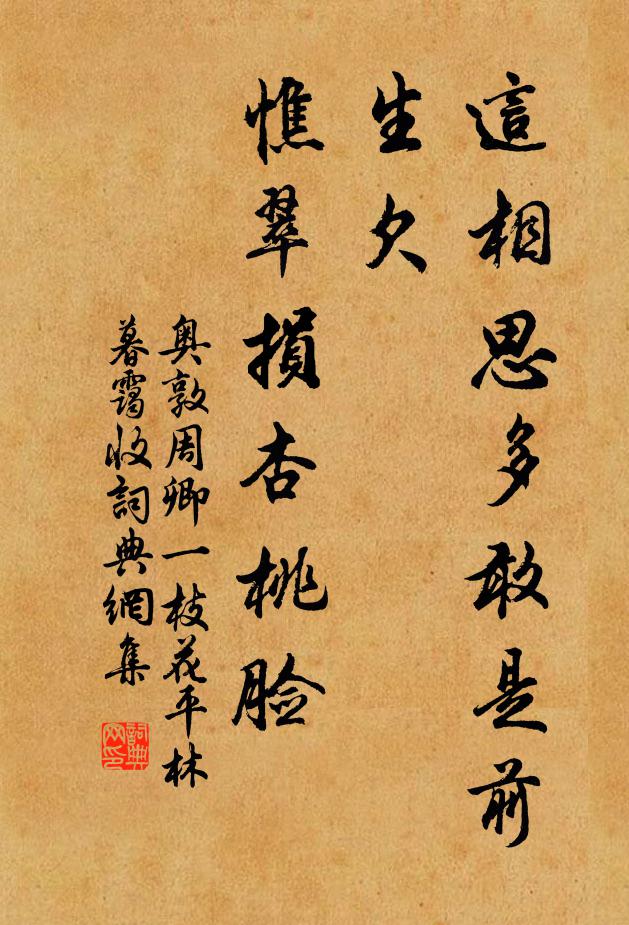 這相思多敢是前
生欠
憔翠損杏桃臉
奥敦周卿一枝花平林
暮靄收詞典網集
詞典網印